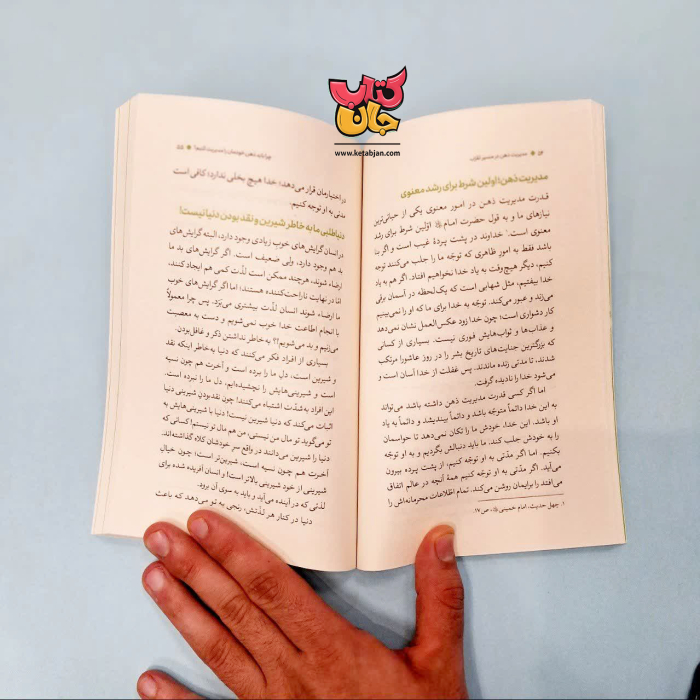 کتاب
جان
www.ketabjan.com
۵۴ ● مدیریت ذهن در مسیر تقرب
مدیریت ذهن؛ اولین شرط برای رشد معنوی
قدرت مدیریت ذهن در امور معنوی یکی از حیاتی‌ترین
نیازهای ما و به قول حضرت امام اوّلین شرط برای رشد
معنوی است.¹ خداوند در پشت پردهٔ غیب است و اگر بنا
باشد فقط به امور ظاهری که توجّه ما را جلب می‌کنند توجه
کنیم، دیگر هیچ‌وقت به یاد خدا نخواهیم افتاد. اگر هم به یاد
خدا بیفتیم، مثل شهابی است که یک‌لحظه در آسمان برقی
می‌زند و عبور می‌کند. توجّه به خدا برای ما که او را نمی‌بینیم
کار دشواری است؛ چون خدا زود عکس‌العمل نشان نمی‌دهد
و عذاب‌ها و ثواب‌هایش فوری نیست. بسیاری از کسانی
که بزرگترین جنایت‌های تاریخ بشر را در روز عاشورا مرتکب
شدند، تا مدتی زنده ماندند. پس غفلت از خدا آسان است و
می‌شود خدا را نادیده گرفت.
اما اگر کسی قدرت مدیریت ذهن داشته باشد می‌تواند
به این خدا دائماً متوجّه باشد و دائماً بیندیشد و دائماً به یاد
او باشد. این خدا، خودش ما را تکان نمی‌دهد تا حواسمان
را به خودش جلب کند. ما باید دنبالش بگردیم و به او توجّه
بکنیم. اما اگر مدّتی به او توجّه کنیم، از پشت پرده بیرون
می‌آید. اگر مدّتی به او توجّه کنیم همهٔ آنچه در عالم اتفاق
می‌افتد را برایمان روشن می‌کند. تمام اطّلاعات محرمانه‌اش را
۱. چهل حدیث، امام خمینی، ص ۱۷.
● ۵۵
در اختیارمان قرار می‌دهد؛ خدا هیچ بخلی ندارد؛ کافی است
مدتی به او توجه کنیم.
دنیاطلبی ما به خاطر شیرین و نقد بودن دنیا نیست!
در انسان گرایش‌های خوب زیادی وجود دارد، البته گرایش‌های
بد هم وجود دارد، ولی ضعیف است. اگر گرایش‌های بد ما
ارضاء شوند، هرچند ممکن است لذّت کمی هم ایجاد کنند،
امّا در نهایت ناراحت‌کننده هستند؛ اما اگر گرایش‌های خوب
ما ارضاء شوند انسان لذّت بیشتری می‌بَرَد. پس چرا معمولاً
با انجام اطاعت خدا خوب نمی‌شویم و دست به معصیت
می‌زنیم و بد می‌شویم؟! به خاطر نداشتن ذکر و غافل بودن.
بسیاری از افراد فکر می‌کنند که دنیا به‌خاطر اینکه نقد
و شیرین است، دلِ ما را برده است و آخرت هم چون نسیه
است و شیرینی‌هایش را نچشیده‌ایم، دل ما را نبرده است.
این افراد به‌شدّت اشتباه می‌کنند! چون نقدبودنِ شیرینی دنیا
اثبات می‌کند که دنیا شیرین نیست؛ دنیا با شیرینی‌هایش به
تو می‌گوید تو مال من نیستی، من هم مال تو نیستم! کسانی که
دنیا را شیرین می‌دانند در واقع سرِ خودشان کلاه گذاشته‌اند.
آخرت هم چون نسیه است، شیرین‌تر است؛ چون خیالِ
شیرینی از خود شیرینی بالاتر است! و انسان آفریده شده برای
لذتی که در آینده می‌آید و باید به سوی آن برود.
دنیا در کنار هر لذّتش، رنجی به تو می‌دهد که باعث